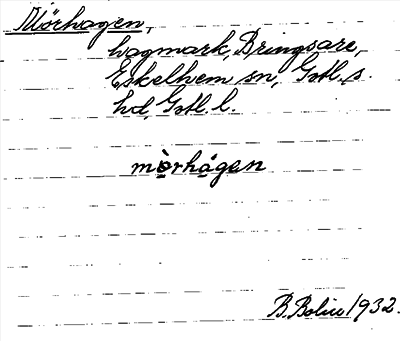 Mörhagen,
hagmark, Bringsare,
Eskelhem sn, Gotl. s.
hd, Gotl. l.
mòrhágen
B. Bolin 1932.